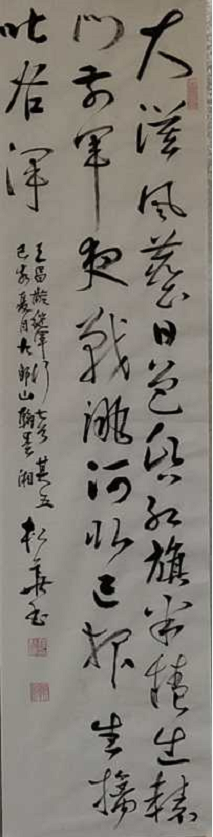 大漠風塵日色昏紅旗半捲出轅
門前軍夜戰洮河北已報生擒
吐谷渾
王昌齡從軍行七首其五
己亥夏月於邙山翰墨
松 書